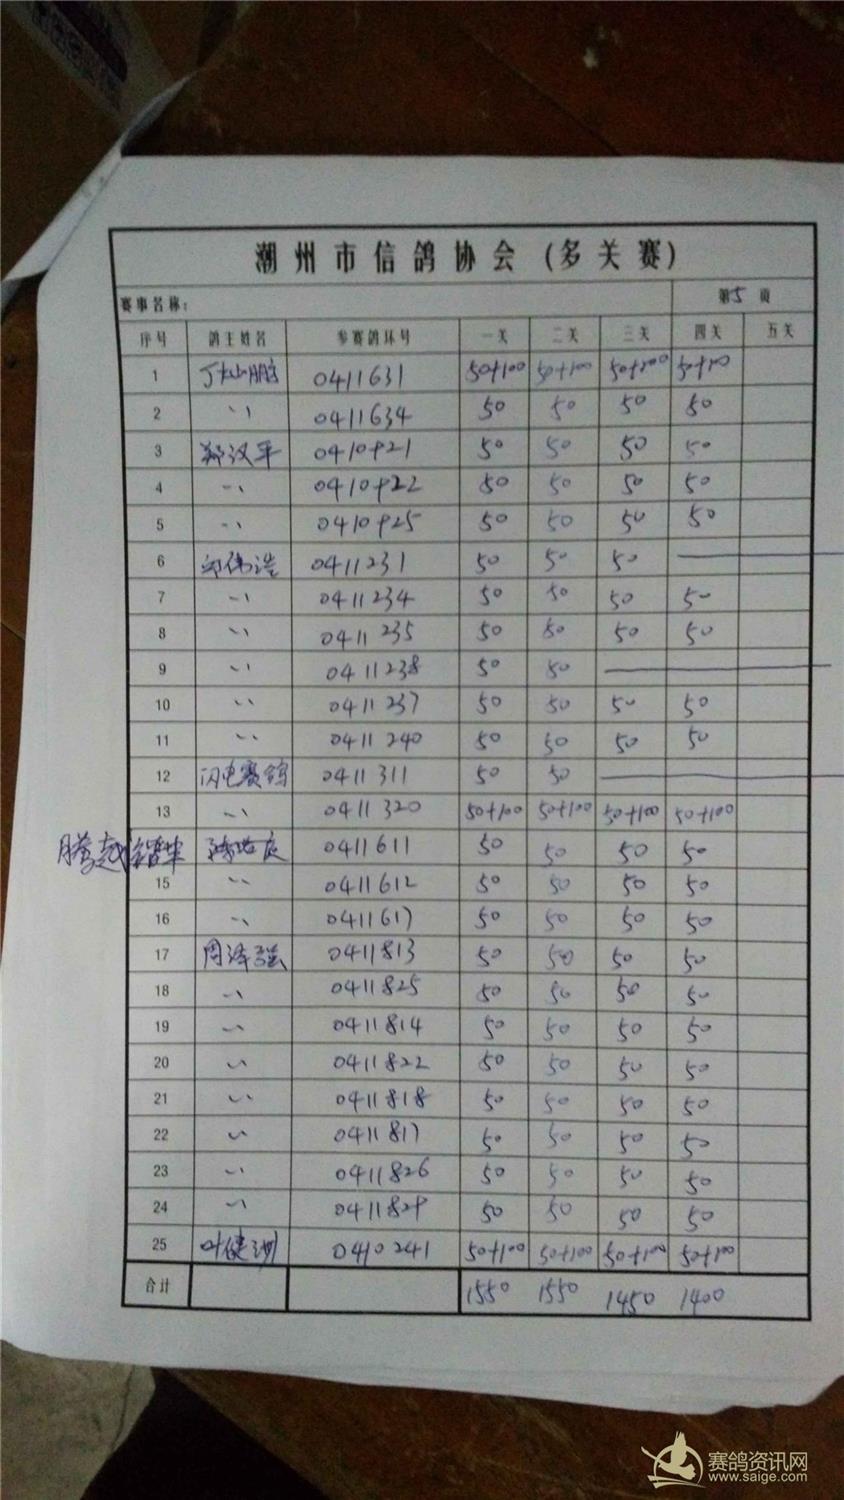 潮州市信鸽协会(多关赛)
赛事名称: 第5页
序号 鸽主姓名 参赛鸽环号 一关 二关 三关 四关 五关
1 丁大山鹏 0411631 50+100 50+100 50+100 50+100
2 〃 0411634 50 50 50 50
3 郑汉平 0410921 50 50 50 50
4 〃 0410922 50 50 50 50
5 〃 0410925 50 50 50 50
6 邱伟浩 0411231 50 50 50 —
7 〃 0411234 50 50 50 50
8 〃 0411235 50 50 50 50
9 〃 0411238 50 50 —
10 〃 0411237 50 50 50 50
11 〃 0411240 50 50 50 50
12 闪电赛鸽 0411311 50 50 —
13 〃 0411320 50+100 50+100 50+100 50+100
腾越 0411611 50 50 50 50
15 〃 0411612 50 50 50 50
16 〃 0411617 50 50 50 50
17 周泽强 0411813 50 50 50 50
18 〃 0411825 50 50 50 50
19 〃 0411814 50 50 50 50
20 〃 0411822 50 50 50 50
21 〃 0411818 50 50 50 50
22 〃 0411817 50 50 50 50
23 〃 0411826 50 50 50 50
24 〃 0411829 50 50 50 50
25 叶健洲 0410241 50+100 50+100 50+100 50+100
合计 1550 1550 1450 1400
赛鸽资讯网
www.saige.com